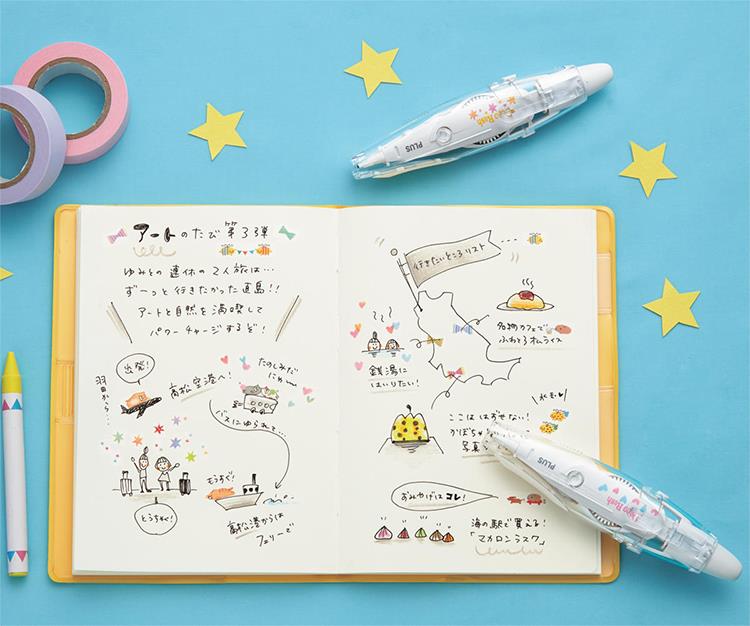 アートのたび 第3弾
ゆみとの 連休の 2人旅は…
ず〜っと行きたかった直島!!
アートと自然を満喫して
パワーチャージするぞ!
出発!
羽田から…
高松空港へ!
たのしみだ
にゃ〜
バスにゆられて…
とうちゃく!
もうすぐ!
高松港からは
フェリーで
行きたいところリスト
名物カフェで
ふわとろオムライス
銭湯に
はいりたい!
ここははずせない!
かぼちゃ
写真
おみやげはコレ!
海の駅で買える!
「マカロンラスク」
PLUS
Deco Rush
PLUS
Deco Rush